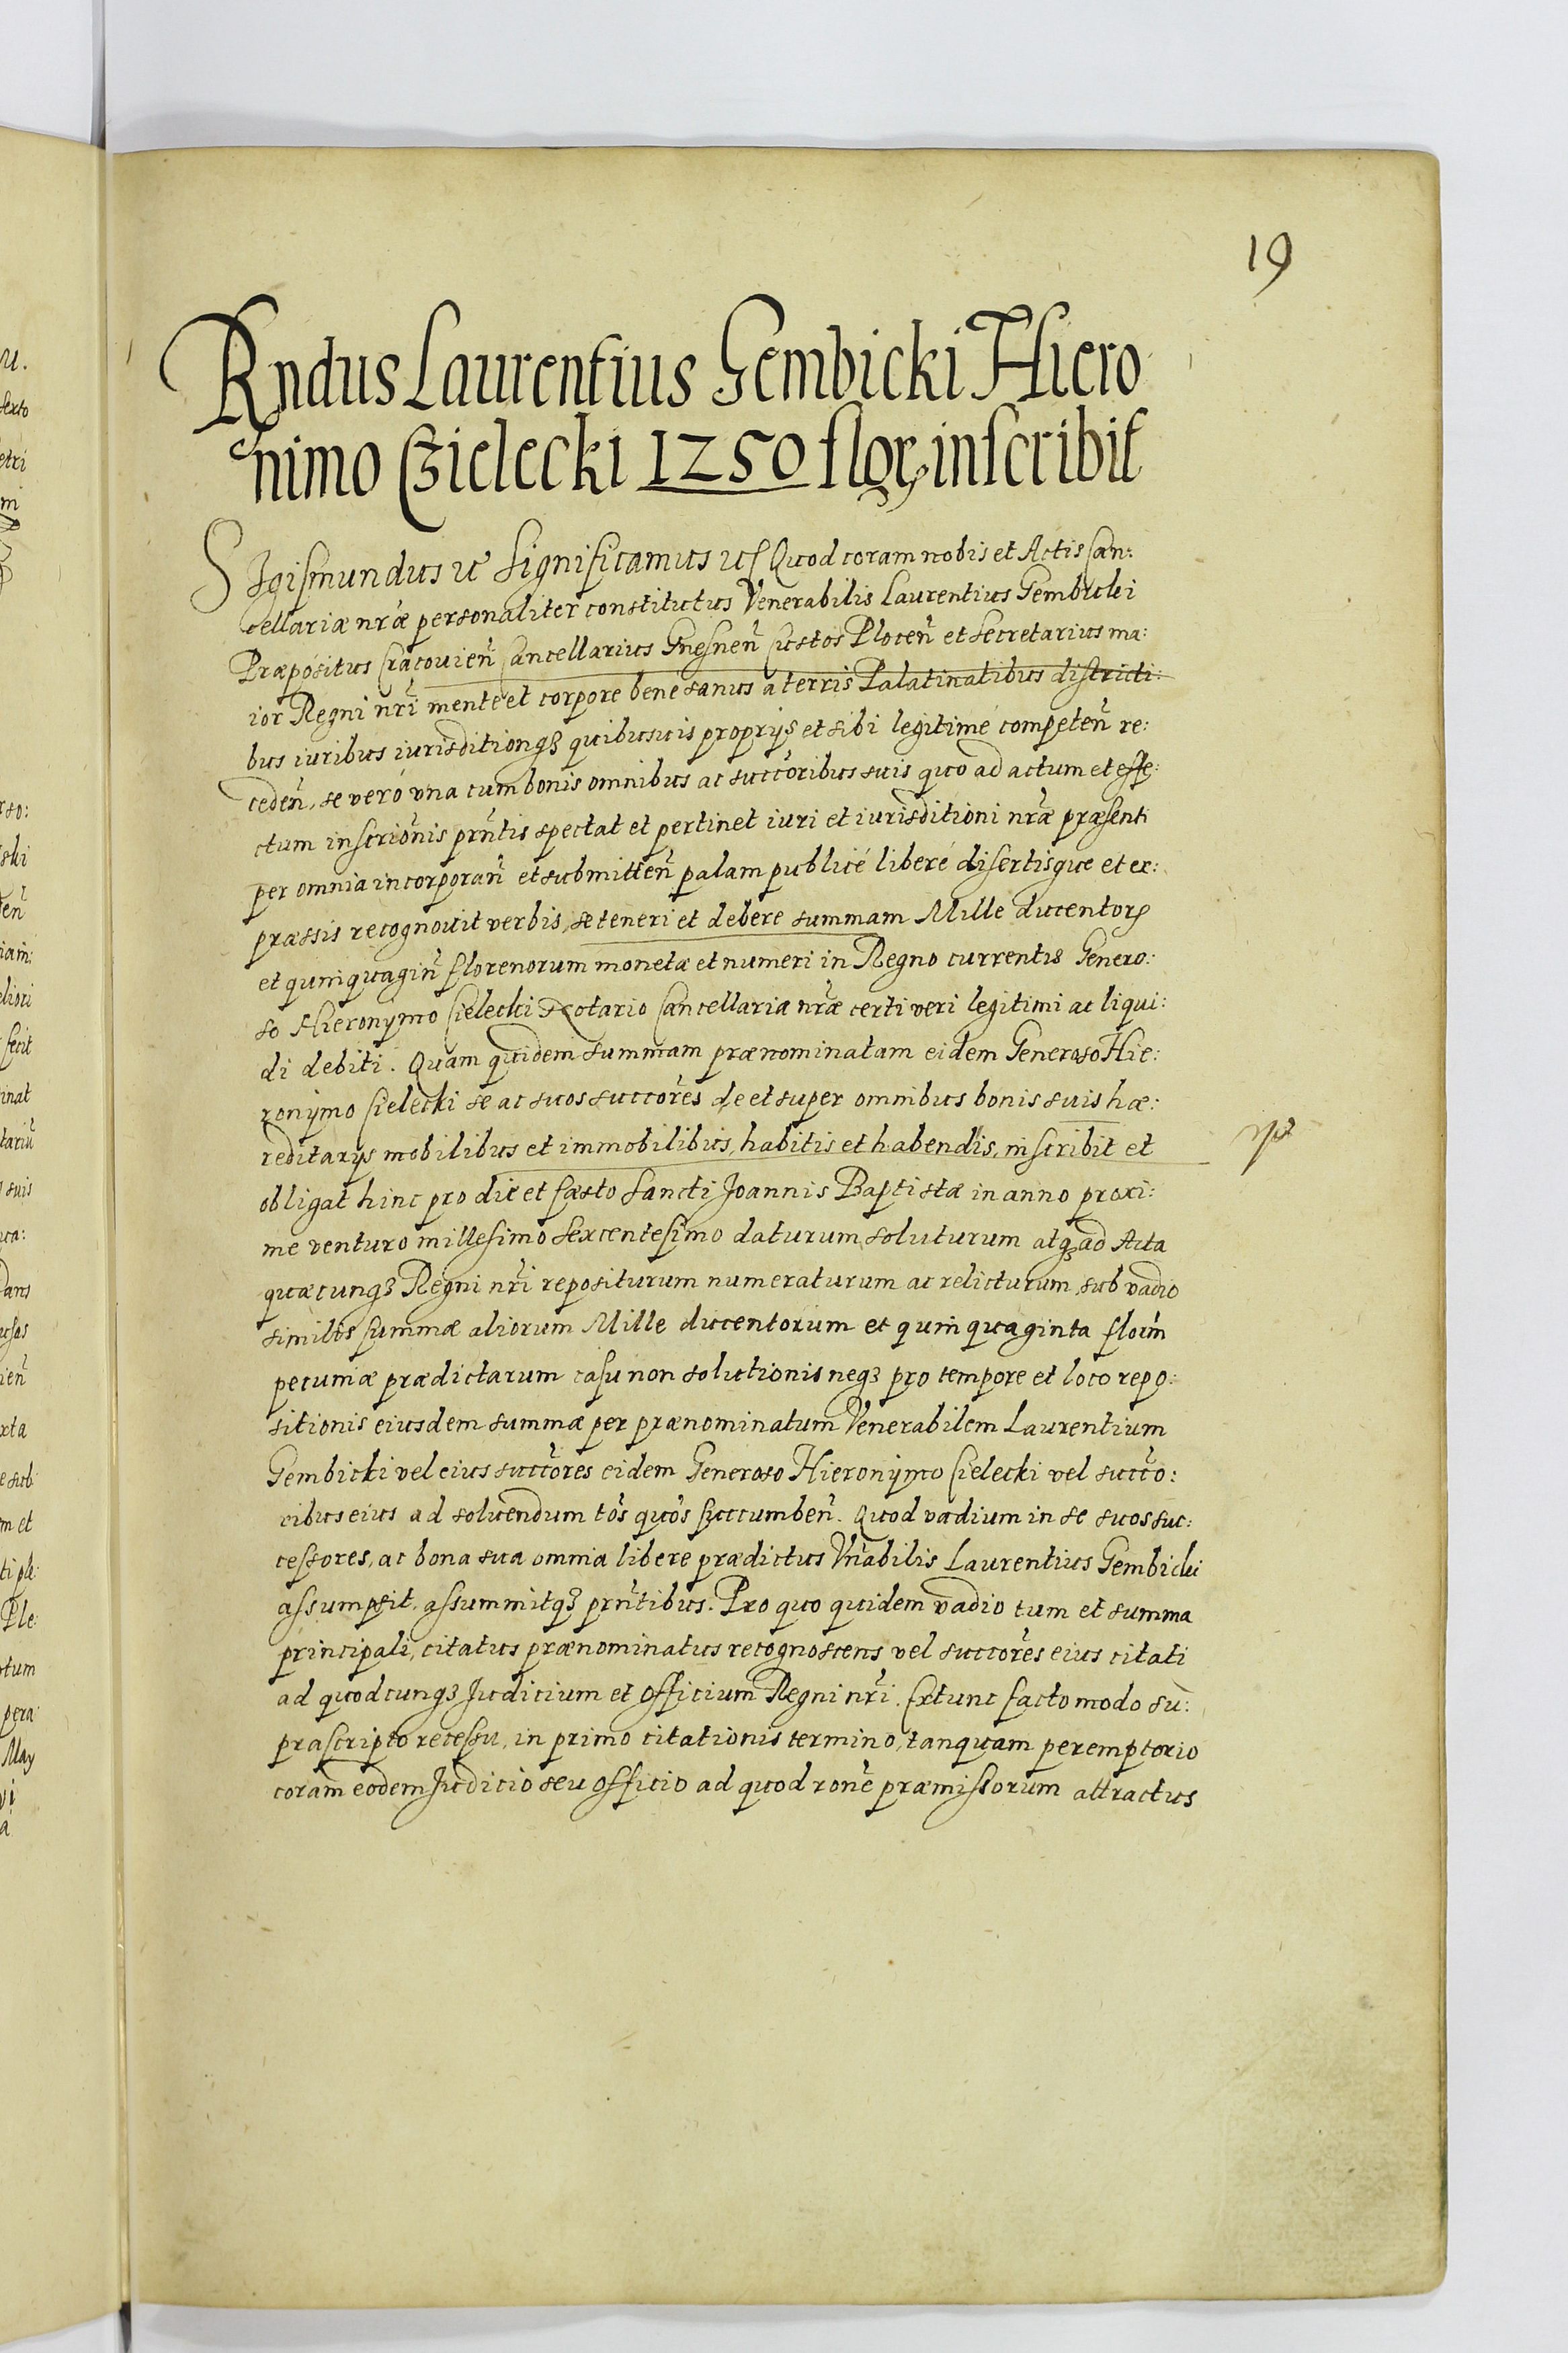 19
Rndus Laurentius Gembicki Hiero
nimo Czielecki 1250 flor inscribit
Sigismundus etc Significamus etc Quod coram nobis et Actis Can:
cellariæ nr̃æ personaliter constitutus Venerabilis Laurentius Gembicki
Præpositus Cracouien̄ Cancellarius Gnesnen̄ Custos Plocen̄ et Secretarius ma:
ior Regni nr̃i mente et corpore bene sanus a terris Palatinatibus districti:
bus iuribus iurisditionq3 quibusuis proprijs et sibi legitimé competen̄ re:
ceden̄, se veró vna cum bonis omnibus ac succ̃oribus suis quo ad actum et effe:
ctum inscrip̃onis pr̃ntis spectat et pertinet iuri et iurisditioni nr̃æ præsenti
per omnia incorporan̄ et submitten̄ palam publicé liberé disertisque et ex:
præssis recognouit verbis, se teneri et debere summam Mille ducentor
et quinquagin̄ florenorum monetæ et numeri in Regno currentis Genero:
so Hieronymo Cielecki Notario Cancellariæ nr̃æ certi veri legitimi ac liqui:
di debiti. Quam quidem summam prænominatam eidem Generoso Hie:
ronymo Cielecki se ac suos succ̃ores de et super omnibus bonis suis hæ:
reditarys mobilibus et immobilibus, habitis et habendis, inscribit et
obligat hinc pro die et fæsto Sancti Joannis Baptistæ in anno proxi:
me venturo millesimo sexcentesimo daturum soluturum atq3 ad Acta
quæcunq3 Regni nr̃i repositurum numeraturum ac relicturum, sub vadio
similis summæ aliorum Mille ducentorum et quinquaginta floŕm
pecuniæ prædictarum casu non solutionis neq3 pro tempore et loco repo:
sitionis eiusdem summæ per prænominatum Venerabilem Laurentium
Gembicki vel eius succ̃ores eidem Generoso Hieronymo Cielecki vel succ̃o:
ribus eius ad soluendum tõs quõs succumben̄. Quod vadium in se suos suc:
cessores, ac bona sua omnia libere prædictus Vn̄abilis Laurentius Gembicki
assumpsit, assummitq3 pr̃ntibus. Pro quo quidem vadio tum et summa
principali, citatus prænominatus recognoscens vel succ̃ores eius citati
ad quodcunq3 Judicium et Officium Regni nr̃i. Extunc facto modo su:
prascripto recessu, in primo citationis termino, tanquam peremptorio
coram eodem Judicio seu Officio ad quod ron̄e præmissorum attractus